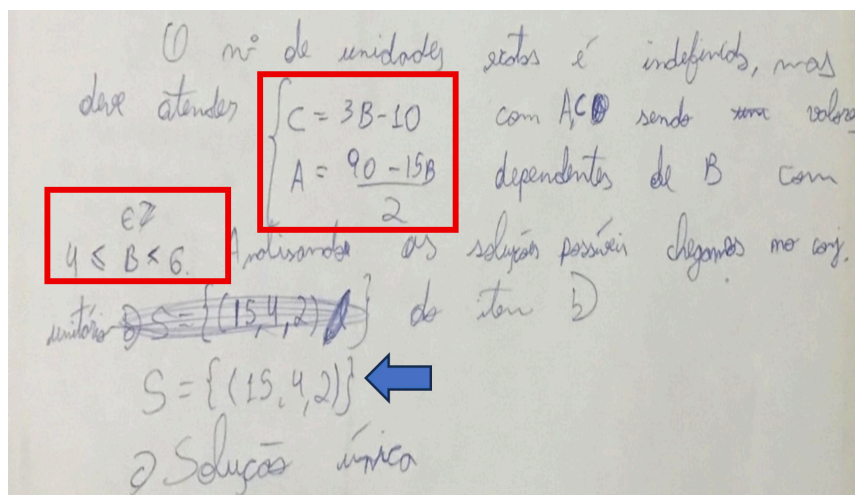 O nº de unidades exatas é indefinido, mas
deve atender { C = 3B - 10 com A, C sendo valores
A = 90 - 15B / 2 dependentes de B com
∈ Z
4 ≤ B < 6. Analisando as soluções possíveis chegamos no conj.
unitário S = {(15, 4, 2)} do item b)
S = {(15, 4, 2)}
c) Solução única